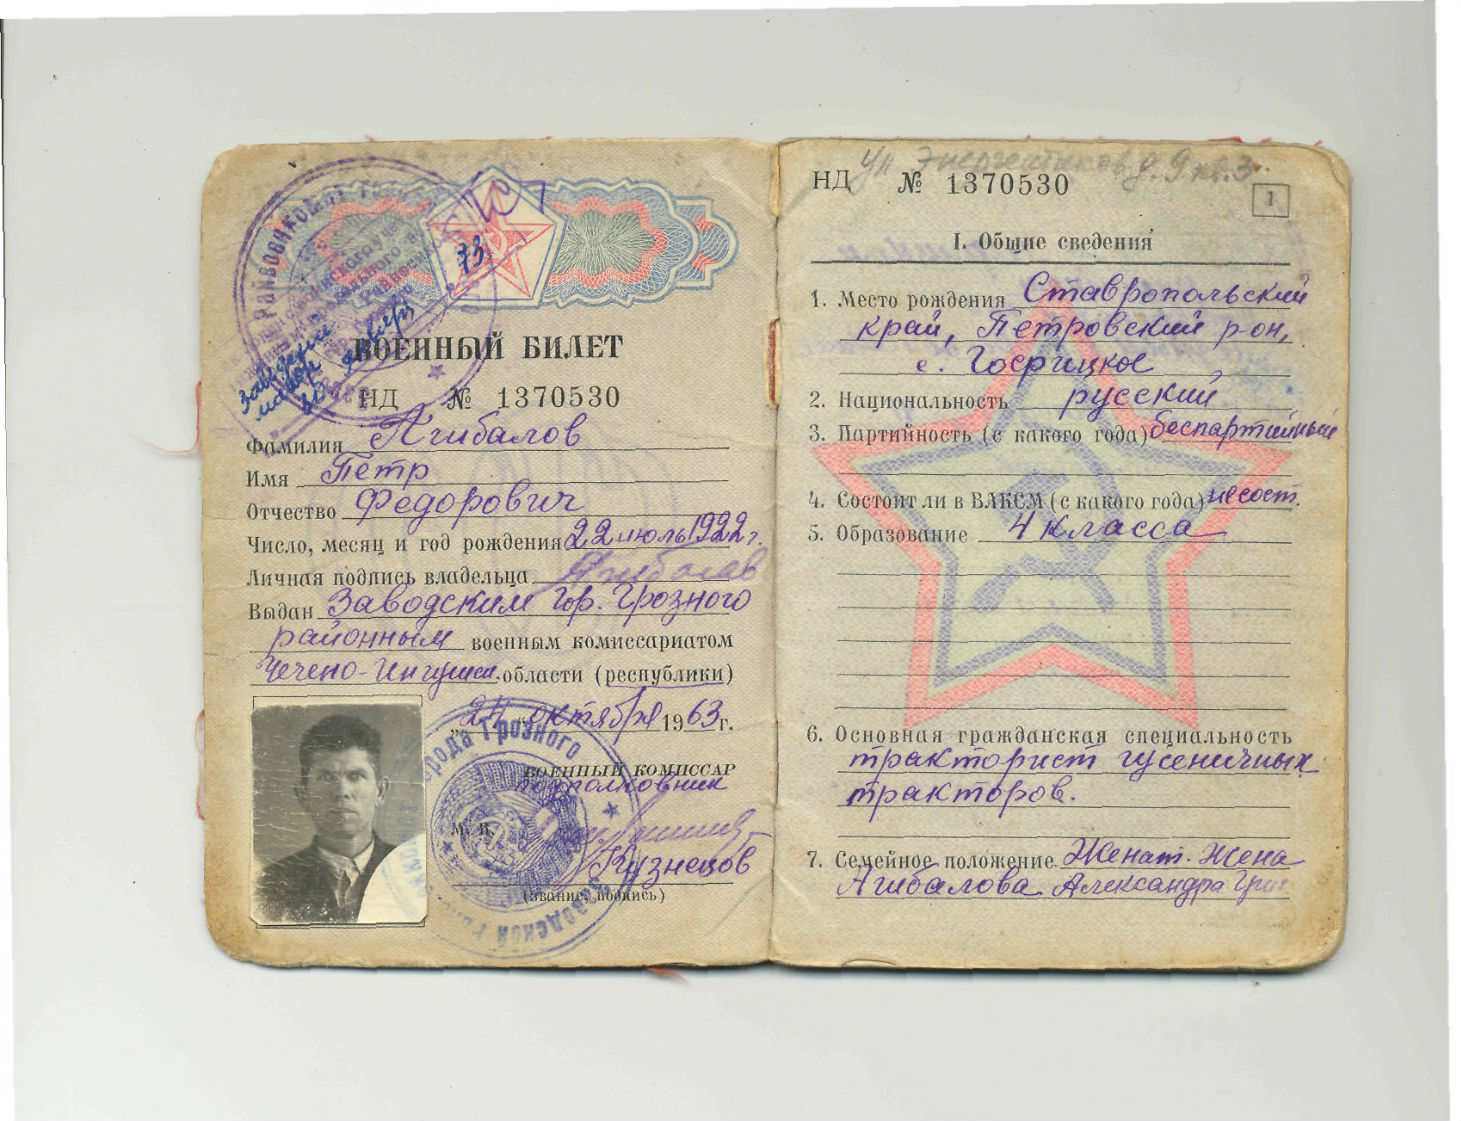 ВОЕННЫЙ БИЛЕТ
НД № 1370530
Фамилия Агибалов
Имя Петр
Отчество Федорович
Число, месяц и год рождения 22 июль 1922 г.
Личная подпись владельца Агибалов
Выдан Заводским гор. Грозного
районным военным комиссариатом
Чечено-Ингушск. области (республики)
"24" октября 1963 г.
города Грозного
ВОЕННЫЙ КОМИССАР
подполковник
М. П.
Кузнецов
(звание, подпись)
73
ул Энергетиков д. 9 кв. 3.
НД № 1370530
1
I. Общие сведения
1. Место рождения Ставропольский
край, Петровский р-он,
с.
2. Национальность русский
3. Партийность (с какого года) беспартийный
4. Состоит ли в ВЛКСМ (с какого года) не сост.
5. Образование 4 класса
6. Основная гражданская специальность
тракторист гусеничных
тракторов.
7. Семейное положение Женат. Жена
Агибалова Александра